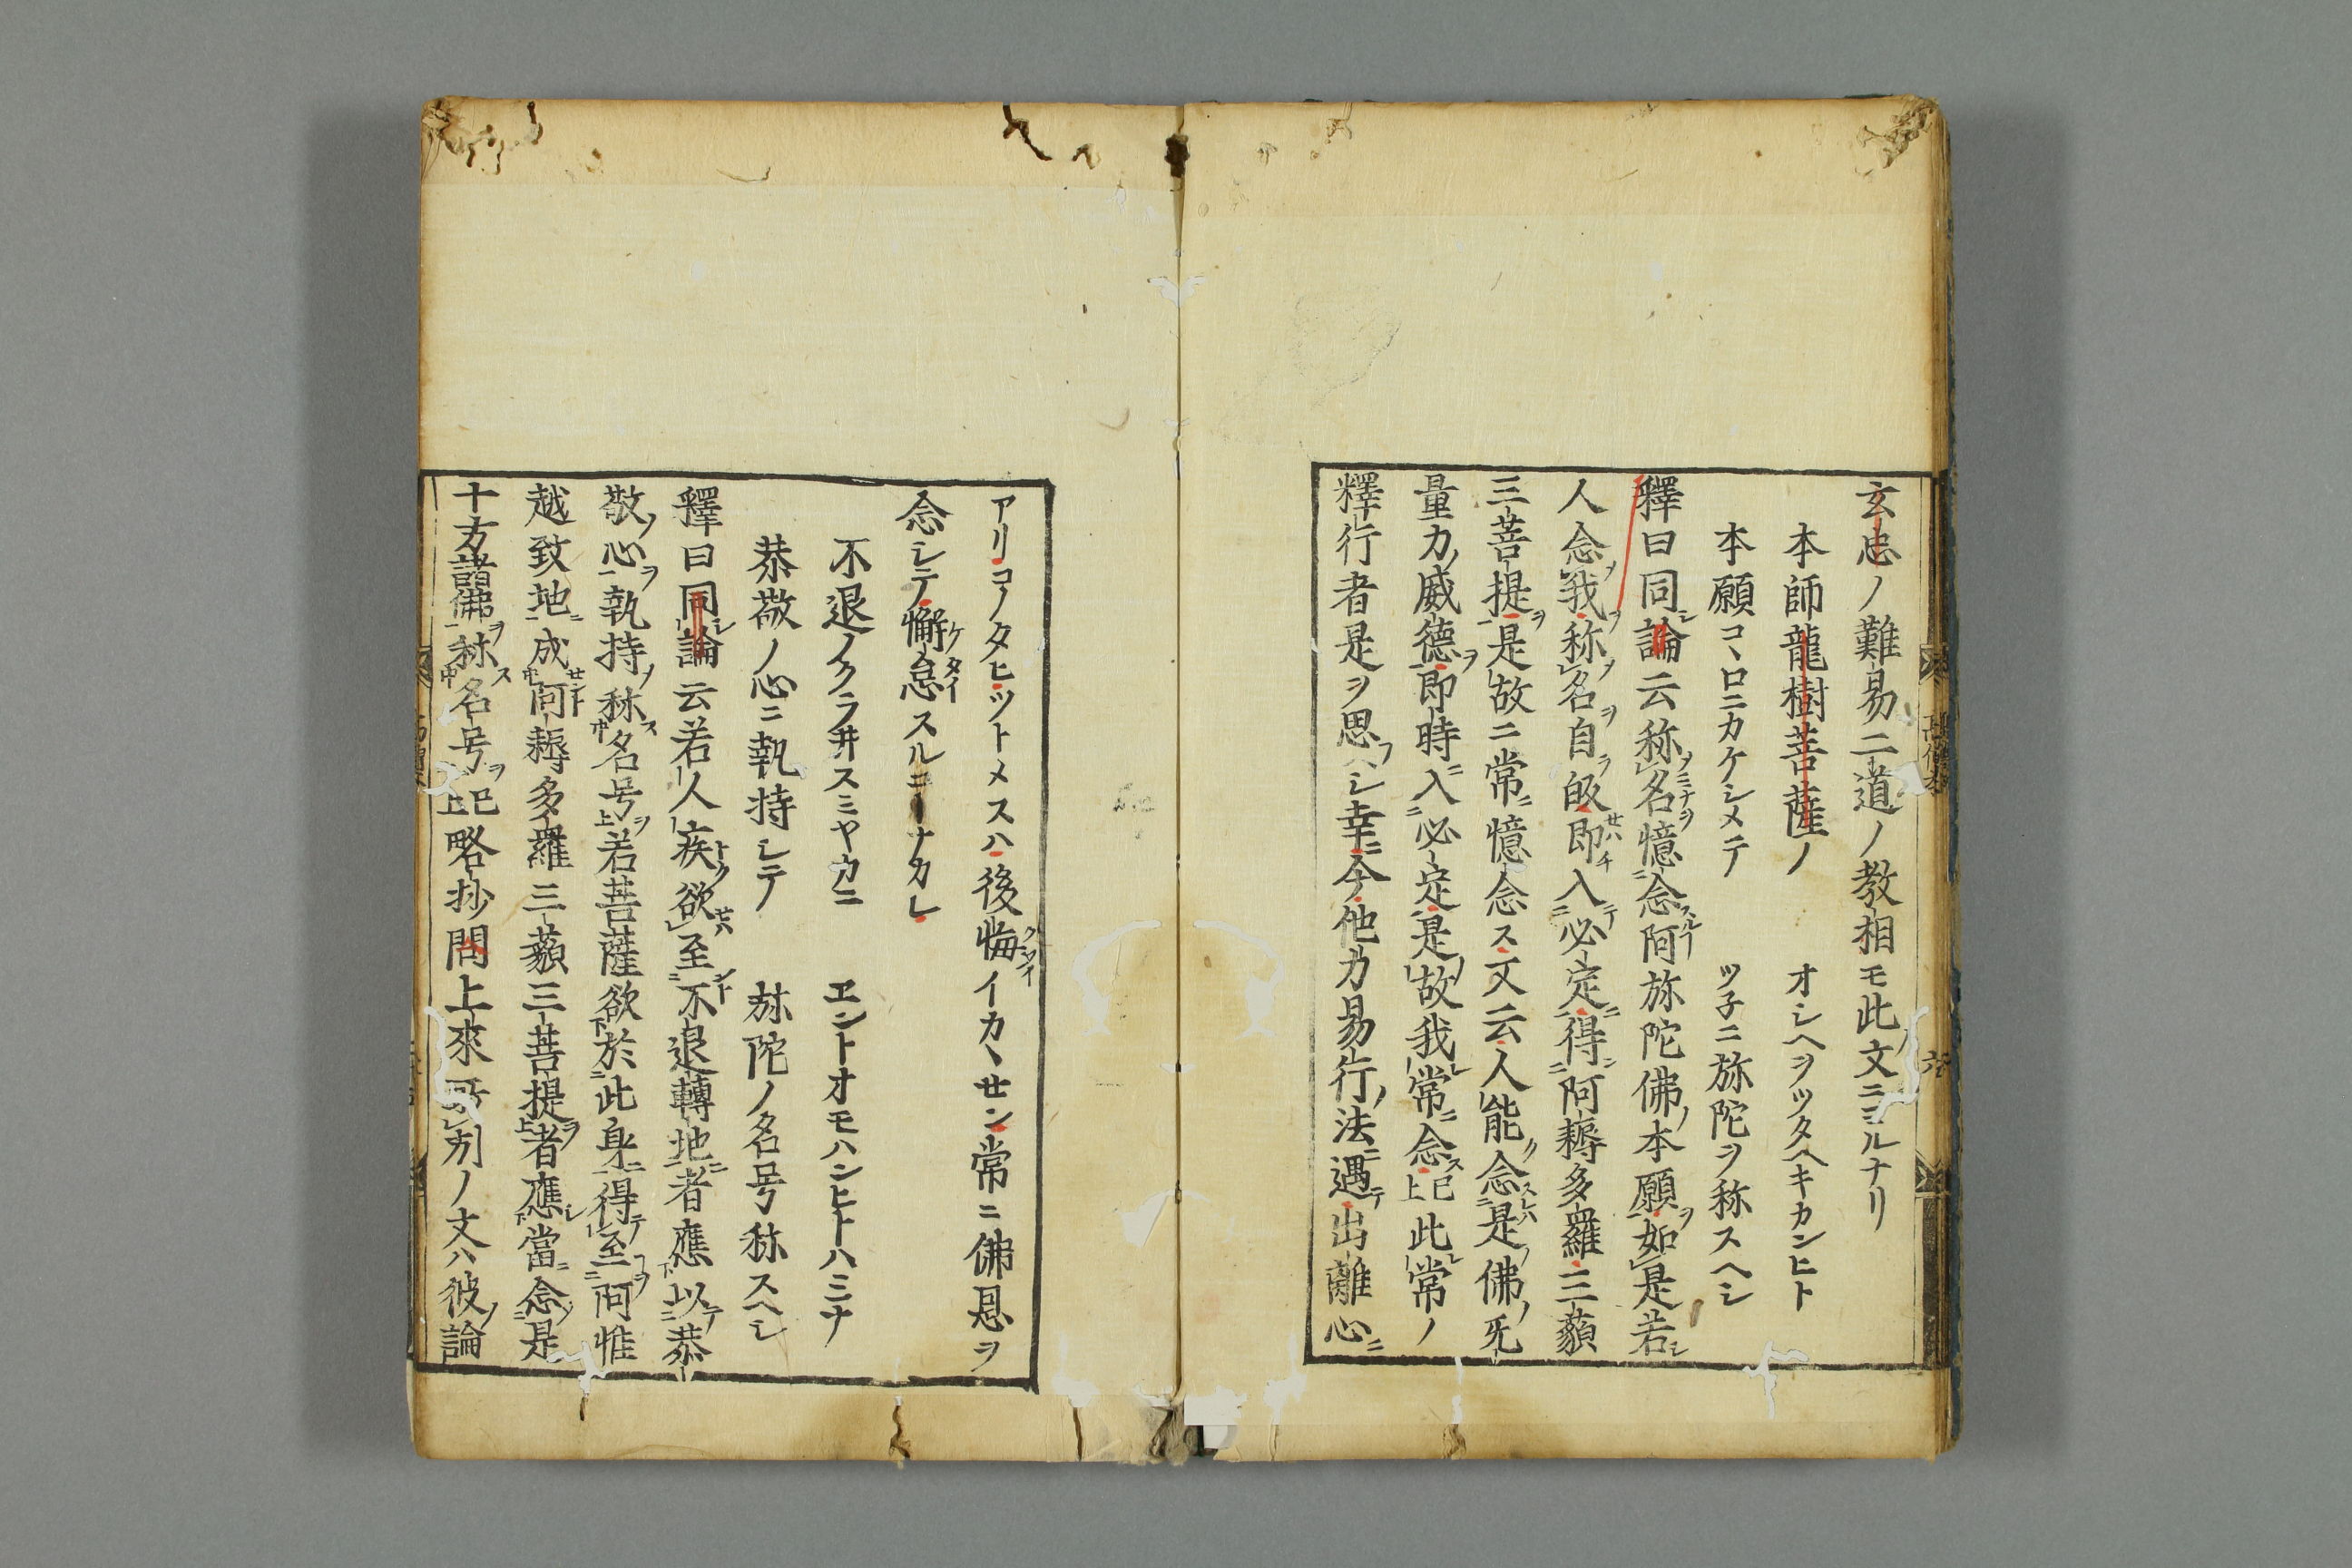 玄忠ノ難易二道ノ教相モ此文ニミルナリ
本師龍樹菩薩ノ　オシヘヲツタヘキカンヒト
本願コヽロニカケシメテ　ツ子ニ旀陀ヲ称スヘシ
釋曰同論云称名憶念阿旀陀佛本願如是若
人念我称名自皈即入必定得阿耨多羅三藐
三菩提是故ニ常憶念ス文云人能念是佛无
量力威德即時入必定是故我常念已上此常ノ
釋行者是ヲ思ヘシ幸今他力易行法遇出離心
アリコノタヒツトメスハ後悔イカヽセン常ニ佛恩ヲ
念シテ懈怠スルコトナカレ
不退ノクラ井スミヤカニ　ヱントオモハンヒトハミナ
恭敬ノ心ニ執持シテ　旀陀ノ名号称スヘシ
釋曰同論云若人疾欲至不退轉地者應以恭
敬心執持称名号若菩薩欲於此身得至阿惟
越致地成阿耨多羅三藐三菩提者應當念是
十方諸佛称名号已上略抄問上來所列ノ文ハ彼論